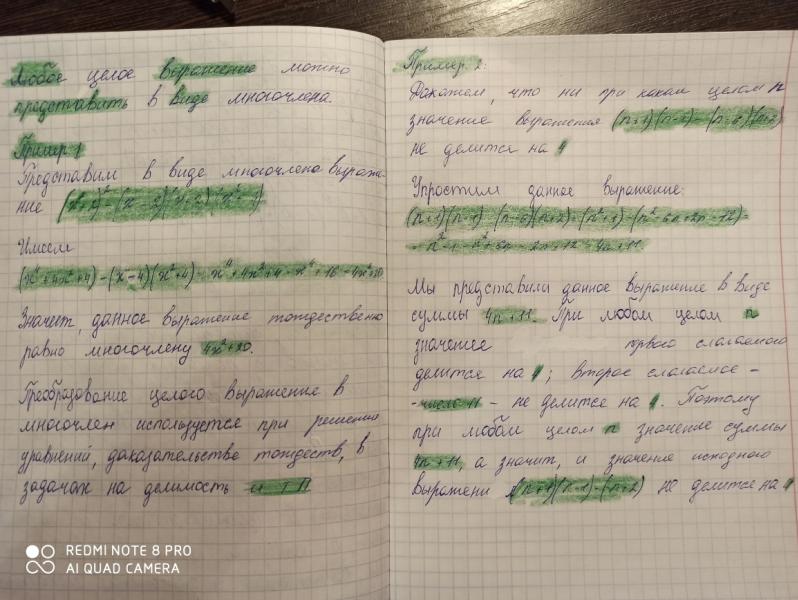 Любое целое выражение можно
представить в виде многочлена.
Пример 1
Представим в виде многочлена выраже-
ние
Имеем
(x⁴+4x²+4)-(x²-4)(x²+4)=x⁴+4x²+4-x⁴+16=4x²+20
Значит, данное выражение тождественно
равно многочлену 4x²+20.
Преобразование целого выражение в
многочлен используется при решение
уравнений, доказательстве тождеств, в
задачах на делимость и т п
REDMI NOTE 8 PRO
AI QUAD CAMERA
Пример 2:
Докажем, что ни при каком целом n
значение выражения (n+1)(n-1)-(n-6)(n+2)
не делится на 4
Упростим данное выражение:
(n+1)(n-1)-(n-6)(n+2)=(n²-1)-(n²-6n+2n-12)=
= n²-1-n²+6n-2n+12=4n+11
Мы представили данное выражение в виде
суммы 4n+11. При любом целом n
значение первого слагаемого
делится на 4; второе слагаемое -
-число 11 - не делится на 4. Поэтому
при любом целом n значение суммы
4n+11, а значит, и значение исходного
выражени (n+1)(n-1)-(n+2) не делится на 4